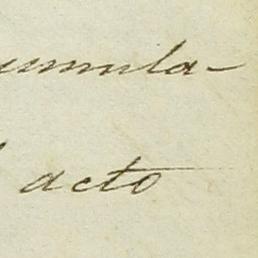 umula-
acto